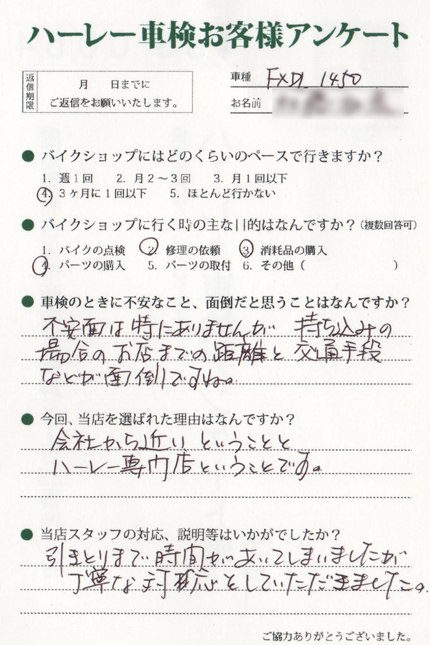 ハーレー車検お客様アンケート
返信期限
月　　日までに
ご返信をお願いいたします。
車種 FXDL 1450
お名前
●バイクショップにはどのくらいのペースで行きますか？
1. 週1回　2. 月2～3回　3. 月1回以下
4. 3ヶ月に1回以下　5. ほとんど行かない
●バイクショップに行く時の主な目的はなんですか？（複数回答可）
1. バイクの点検　2. 修理の依頼　3. 消耗品の購入
4. パーツの購入　5. パーツの取付　6. その他（　　　　　　）
●車検のときに不安なこと、面倒だと思うことはなんですか？
不安面は特にありませんが 持ち込みの
場合の お店までの距離と 交通手段
などが面倒ですね。
●今回、当店を選ばれた理由はなんですか？
会社から近い ということと
ハーレー専門店ということです。
●当店スタッフの対応、説明等はいかがでしたか？
引きとりまで時間があいてしまいましたが
丁寧な対応をしていただきました。
ご協力ありがとうございました。